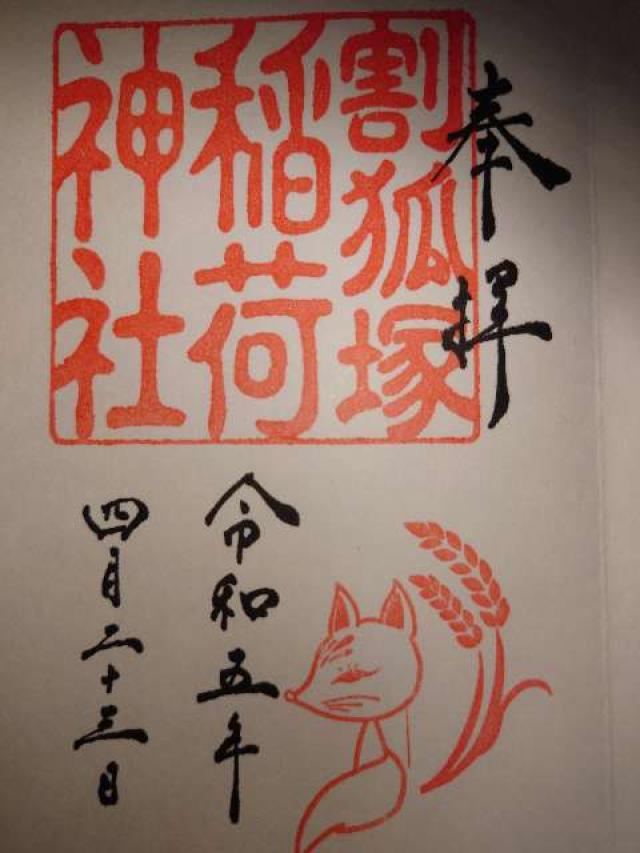 奉拝
割狐塚
稲荷
神社
令和五年
四月二十三日